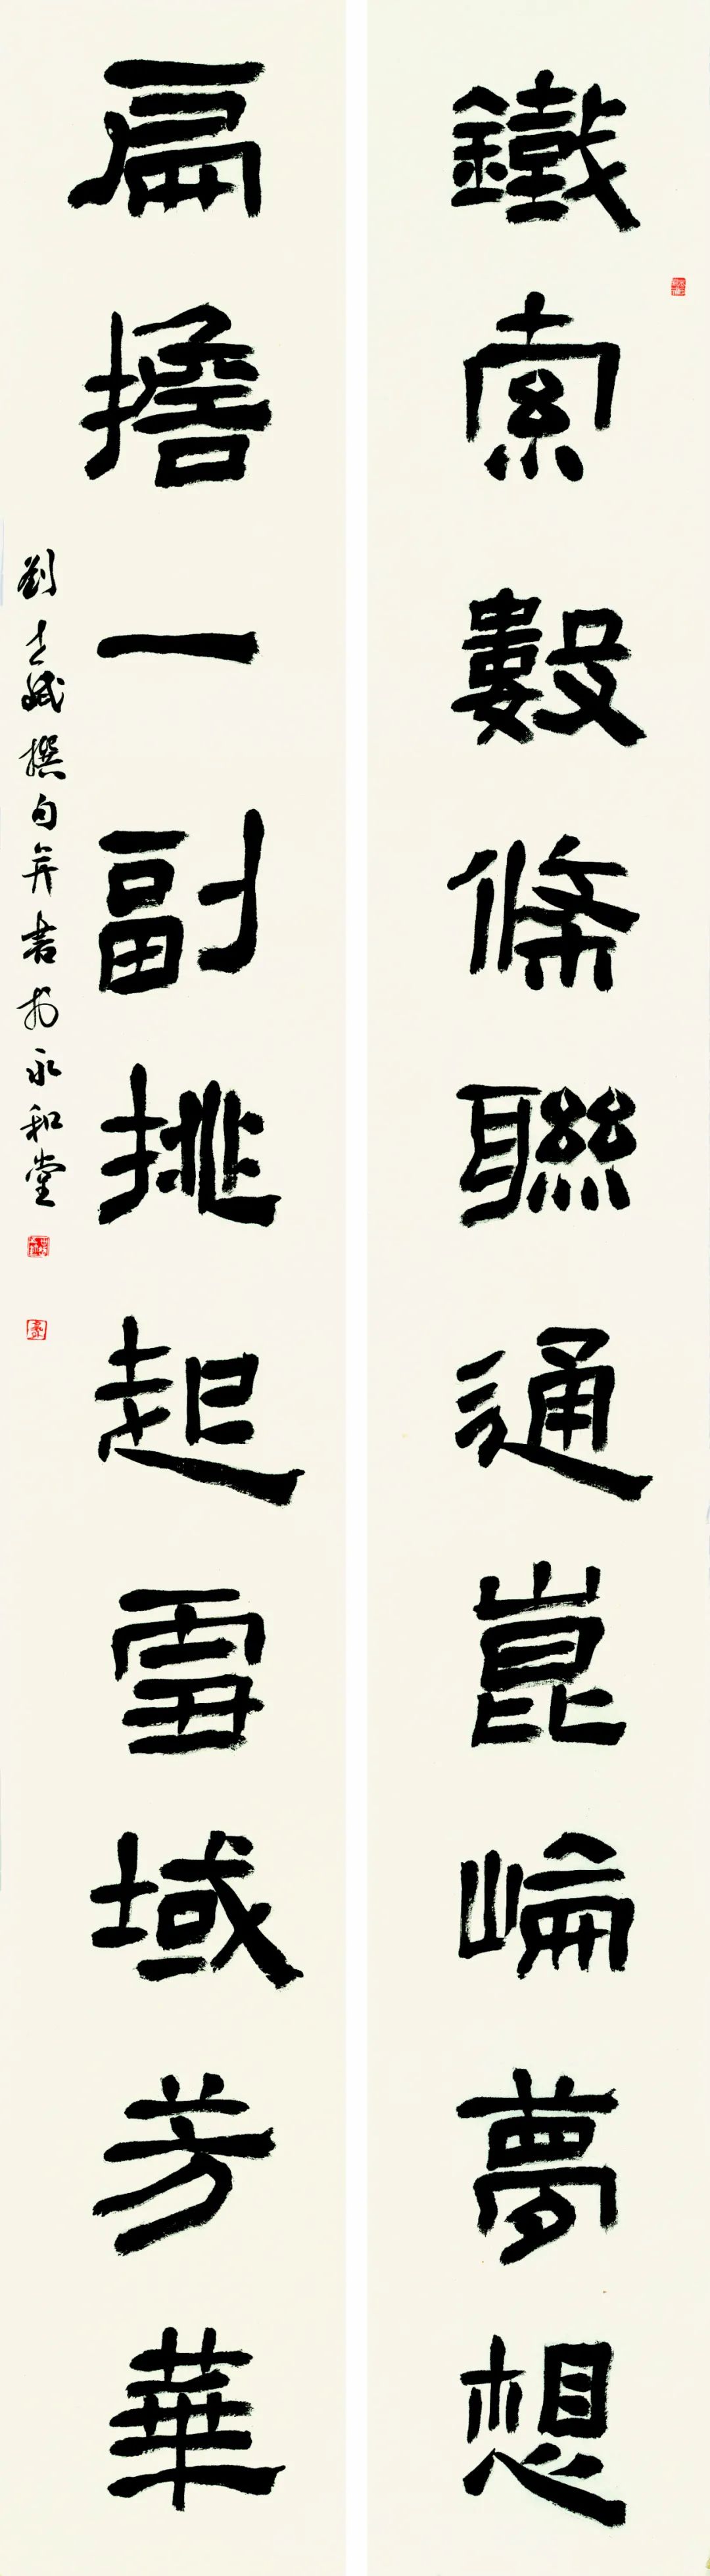 鐵索數條聯通崑崙夢想
扁擔一副挑起雪域芳華
劉士斌撰句并書於永和堂